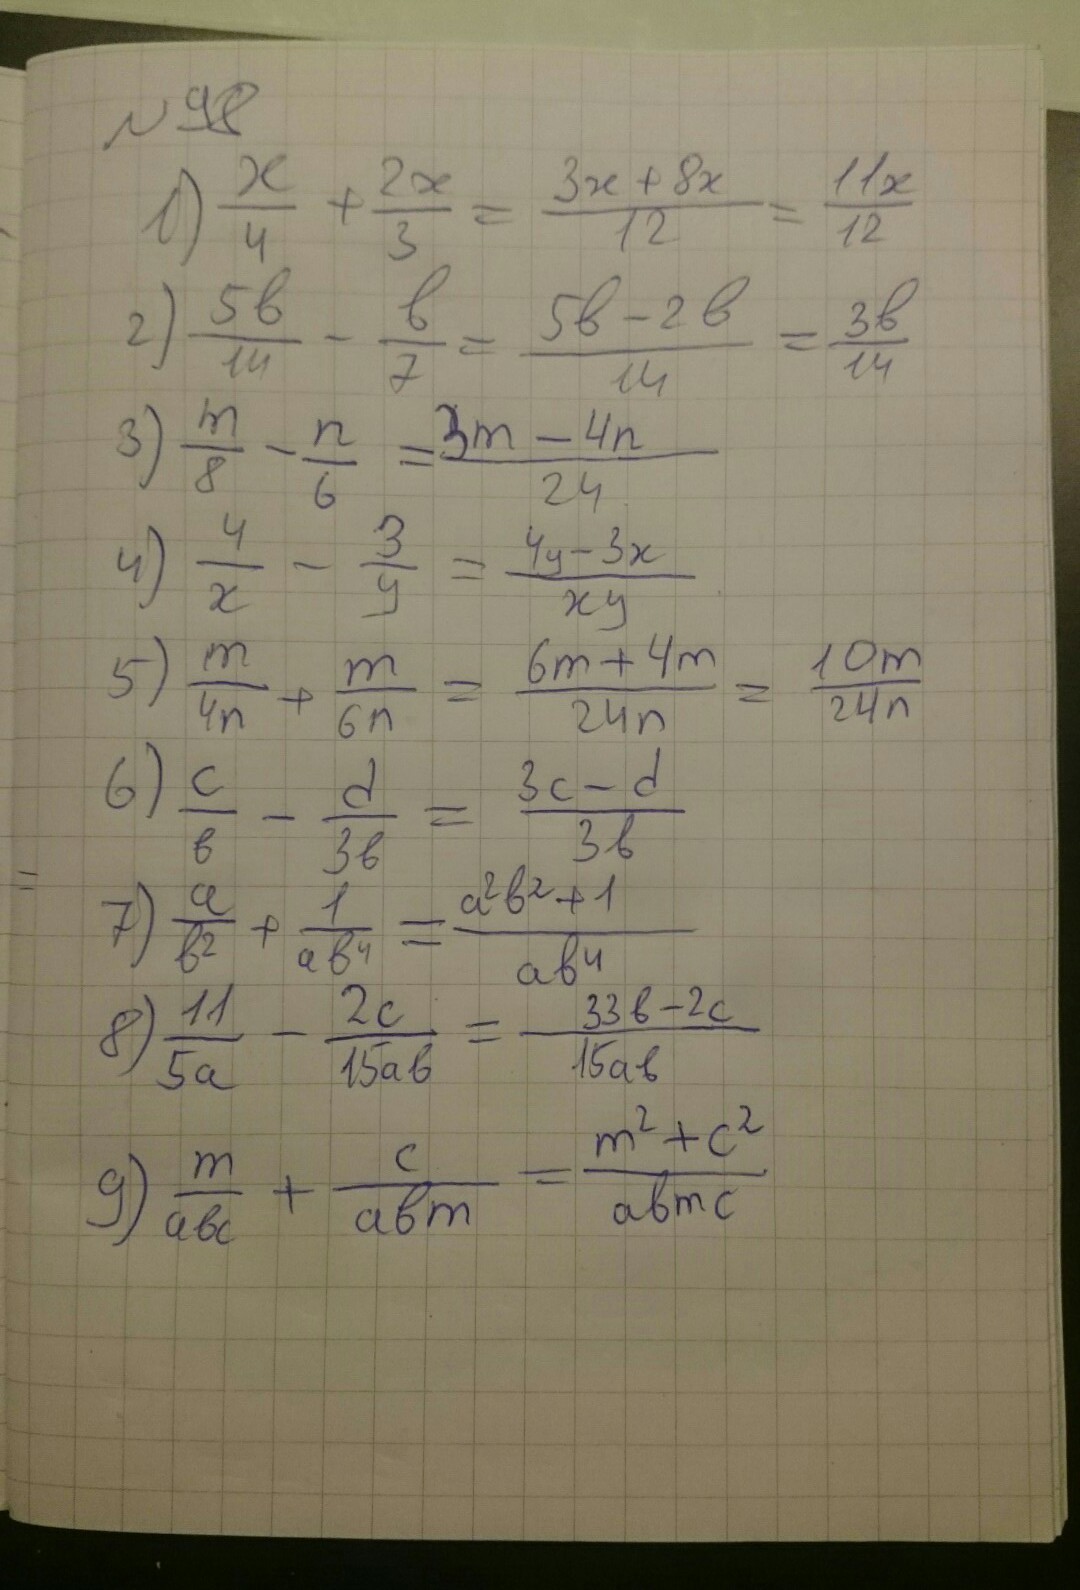 №98
1) x/4 + 2x/3 = 3x+8x/12 = 11x/12
2) 5в/14 - в/7 = 5в-2в/14 = 3в/14
3) m/8 - n/6 = 3m-4n/24
4) 4/x - 3/y = 4y-3x/xy
5) m/4n + m/6n = 6m+4m/24n = 10m/24n
6) c/в - d/3в = 3c-d/3в
7) a/в² + 1/aв⁴ = a²в²+1/aв⁴
8) 11/5a - 2c/15aв = 33в-2c/15aв
9) m/aвc + c/aвm = m²+c²/aвmc
=